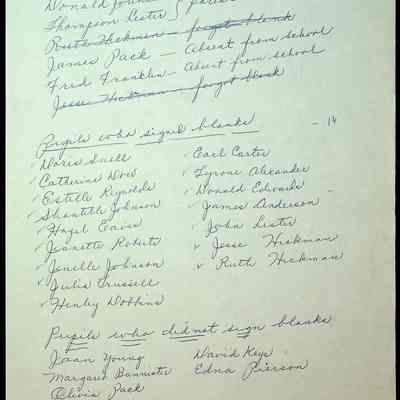 Donald Johns
Thompson Lester
Ruth Hickman - forgot blank
James Pack - Absent from school
Fred Franklin - Absent from school
Jesse Hickman - forgot blank
Pupils who signed blanks - 14
✓ Doris Snell
✓ Catherine Dow
✓ Estelle Reynolds
✓ Shantille Johnson
✓ Hazel Eaves
✓ Jeanette Roberts
✓ Jenelle Johnson
✓ Julia Trussell
✓ Henley Dobbins
✓ Earl Carter
✓ Tyrone Alexander
✓ Donald Edwards
✓ James Anderson
✓ John Lester
✓ Jesse Hickman
✓ Ruth Hickman
Pupils who did not sign blanks
Joan Young
Margaret Bannister
Olivia Pack
David Keys
Edna Pierson